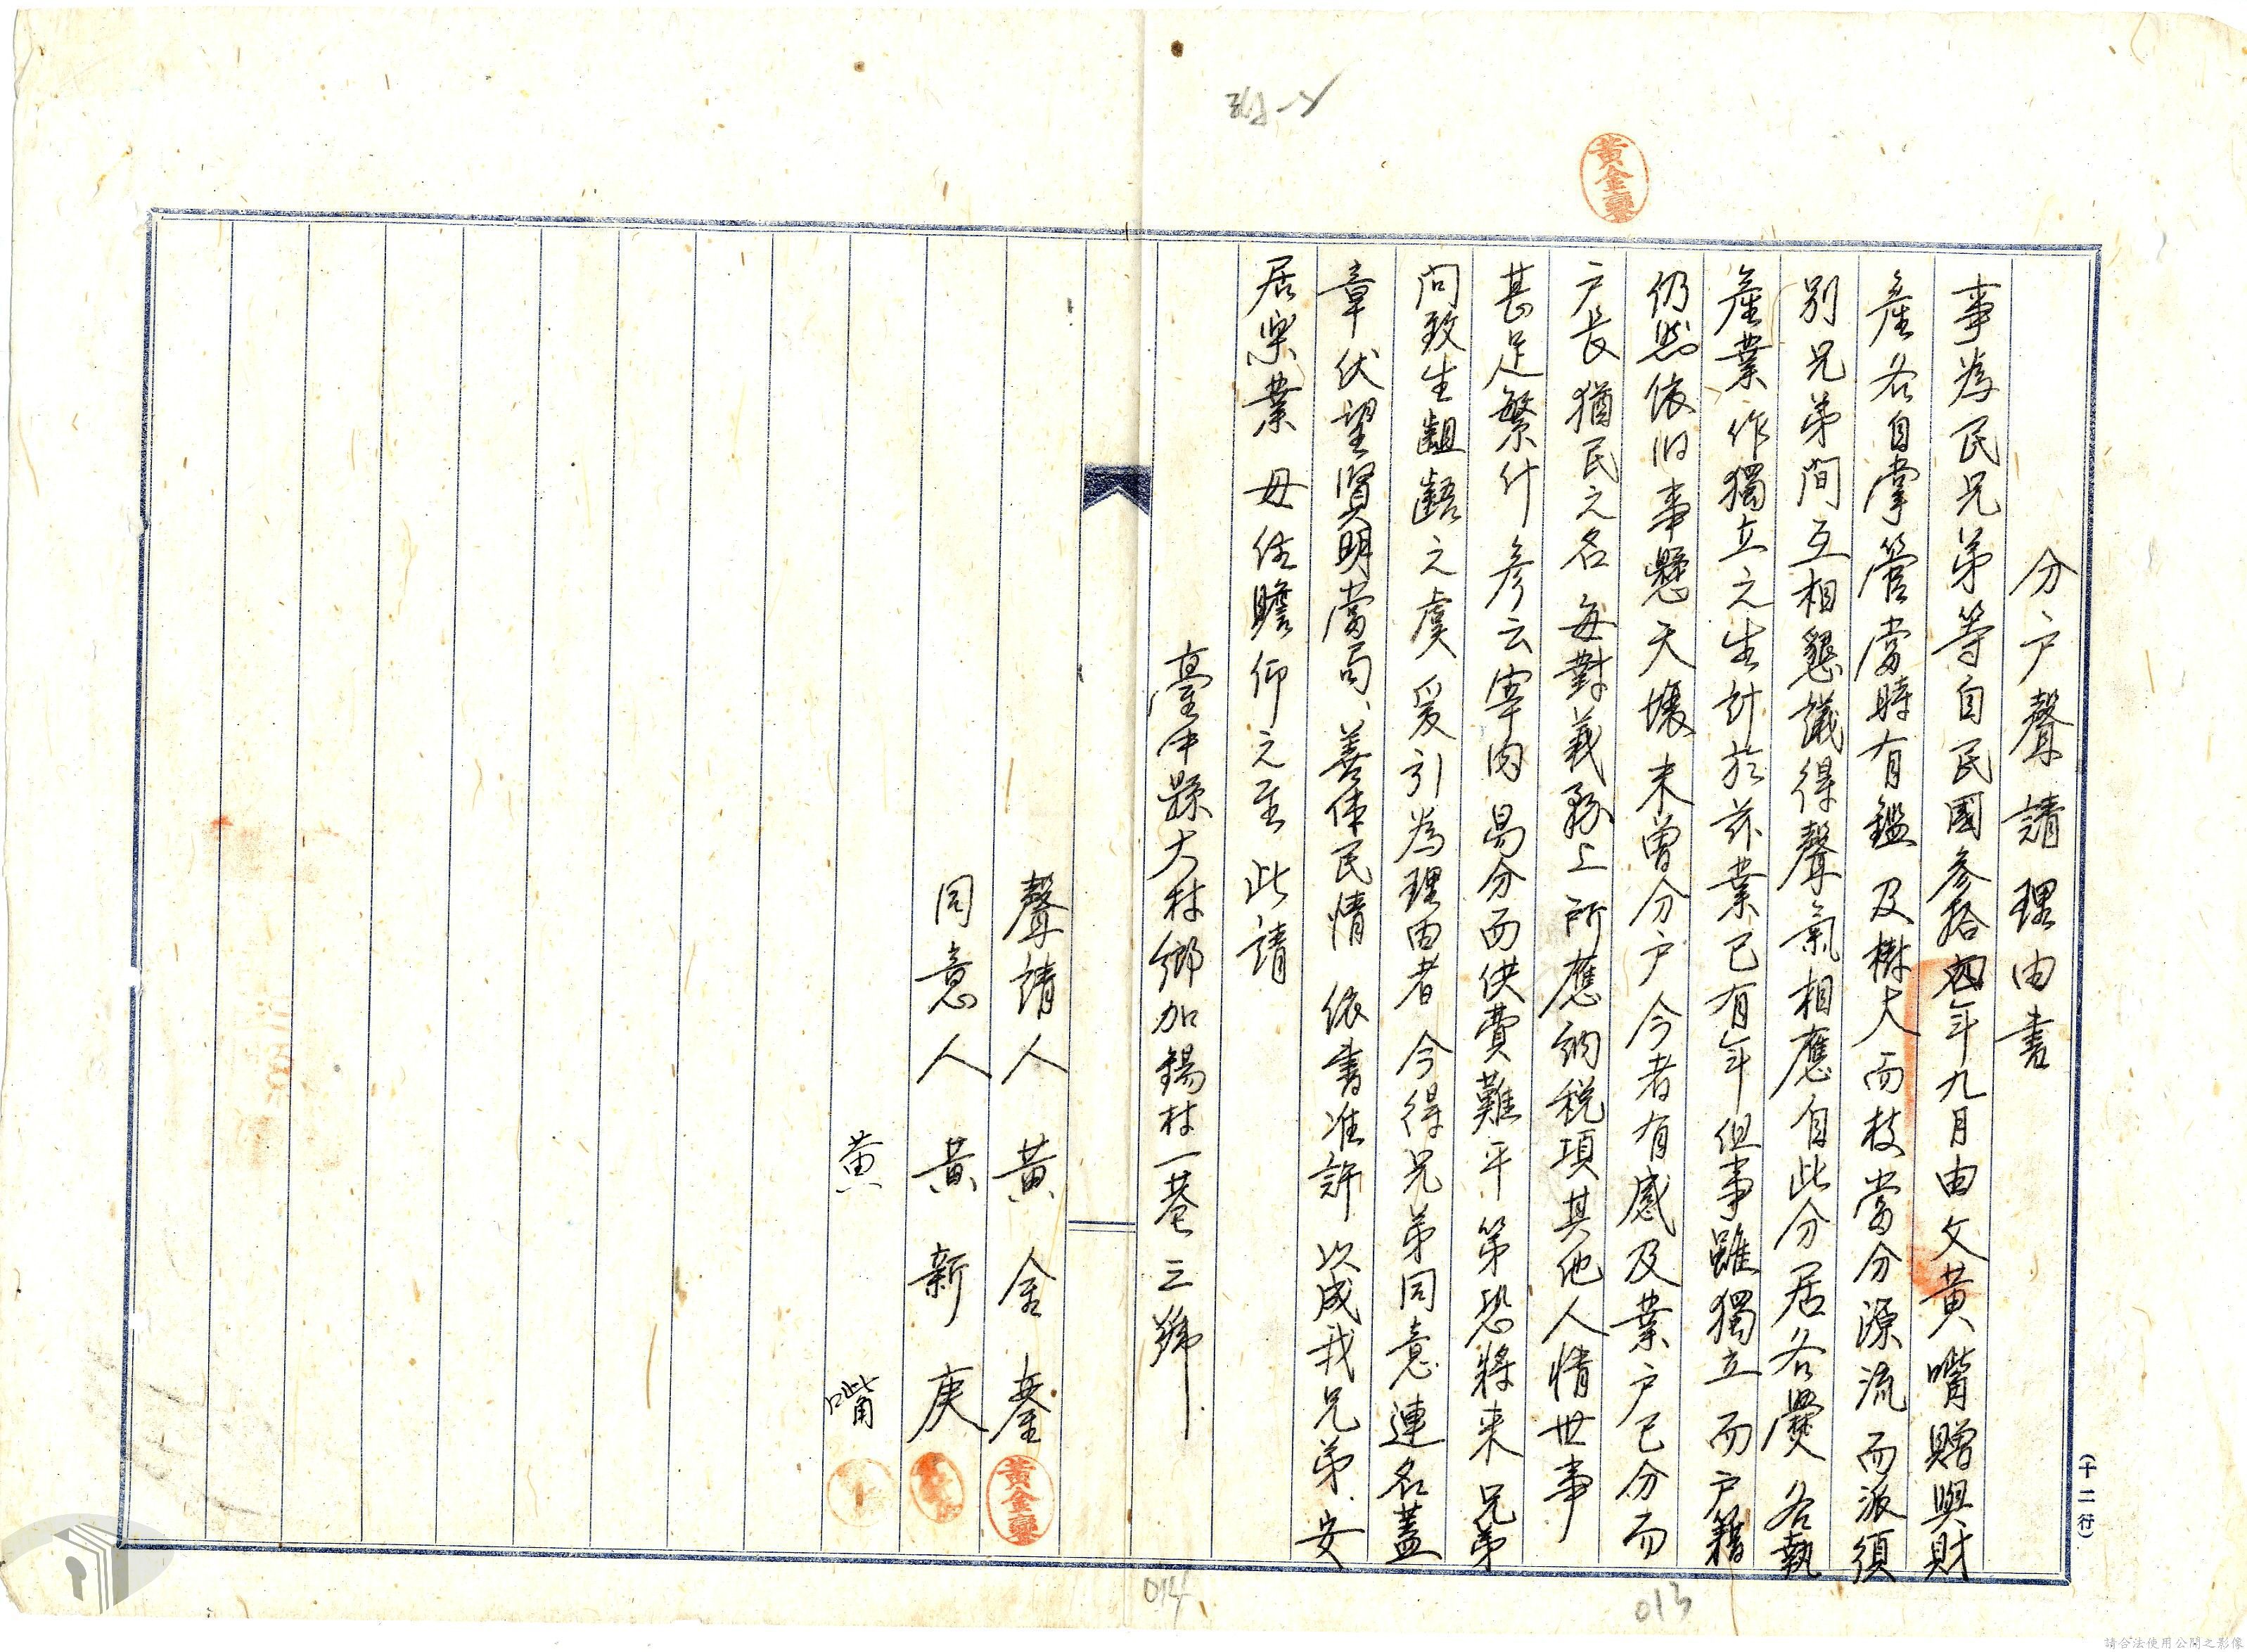 分户聲請理由書
事為民兄弟等自民國參拾四年九月由父黃嘴贈與財
產各自掌管當時有鑑及樹大而枝當分源流而派須
別兄弟間互相懇議得聲氣相應自此分居各爨各執
產業作獨立之生計於茲業已有年但事雖獨立而户籍
仍然依旧事懸天壤未曾分户今者有感及業户已分而
户長猶民之名每對義務上所應納稅項其他人情世事
甚足繁什參云宰肉易分而供費難平第恐將来兄弟
间致生齟齬之虞爰引為理由者今得兄弟同意連名蓋
章伏望賢明當局、善体民情依書准許以成我兄弟、安
居樂業毋任瞻仰之至此請
臺中縣大村鄉加錫村一巷三號
聲請人黃金
同意人黃新庚
黃嘴
黃金
黃金
(十二行)
013
014
請合法使用公開之影像